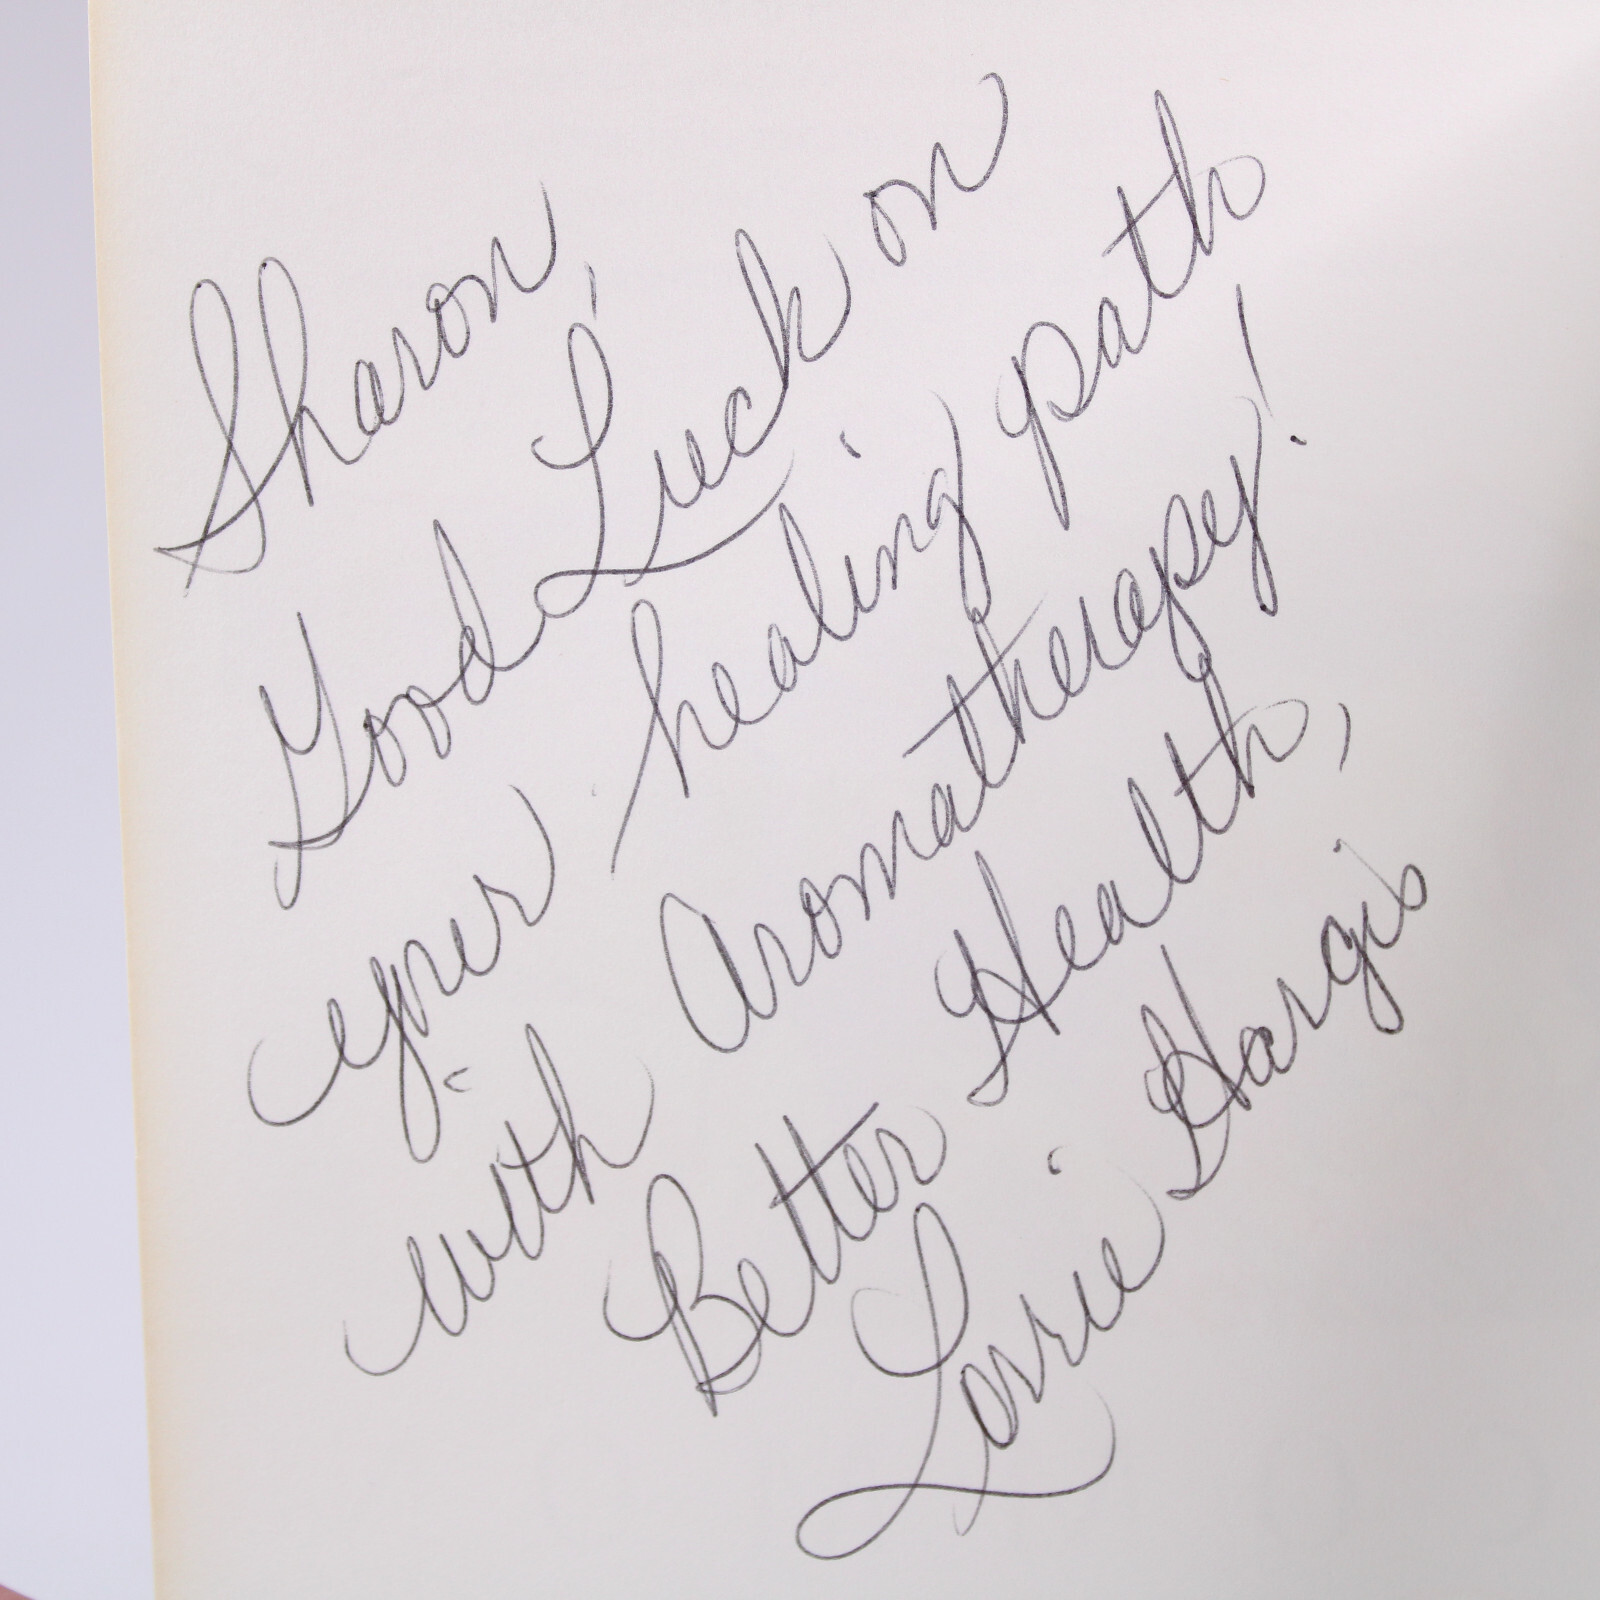 Sharon,
Good Luck on
your healing path
with Aromatherapy!
Better Health,
Lorrie Hargis